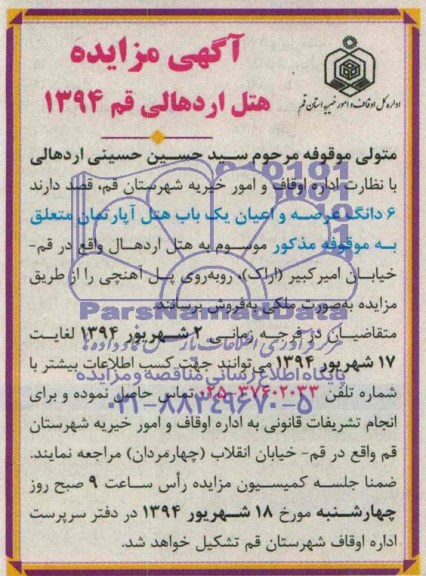 آگهی مزایده
هتل اردهالی قم ۱۳۹۴
اداره کل اوقاف و امور خیریه استان قم
متولی موقوفه مرحوم سید حسین حسینی اردهالی
با نظارت اداره اوقاف و امور خیریه شهرستان قم، قصد دارند
۶ دانگ عرصه و اعیان یک باب هتل آپارتمان متعلق
به موقوفه مذکور موسوم به هتل اردهال واقع در قم-
خیابان امیرکبیر (اراک)، روبه‌روی پل آهنچی را از طریق
مزایده به‌صورت ملکی به‌فروش برسانند.
ParsNamadData
متقاضیان در فرجه زمانی ۲ شهریور ۱۳۹۴ لغایت
۱۷ شهریور ۱۳۹۴ می‌توانند جهت کسب اطلاعات بیشتر با
پایگاه اطلاع رسانی مناقصه و مزایده
شماره تلفن ۳۷۶۰۲۰۳۳-۰۲۵ تماس حاصل نموده و برای
۰۲۱-۸۸۳۴۹۶۷۰-۵
انجام تشریفات قانونی به اداره اوقاف و امور خیریه شهرستان
قم واقع در قم- خیابان انقلاب (چهارمردان) مراجعه نمایند.
ضمنا جلسه کمیسیون مزایده رأس ساعت ۹ صبح روز
چهارشنبه مورخ ۱۸ شهریور ۱۳۹۴ در دفتر سرپرست
اداره اوقاف شهرستان قم تشکیل خواهد شد.